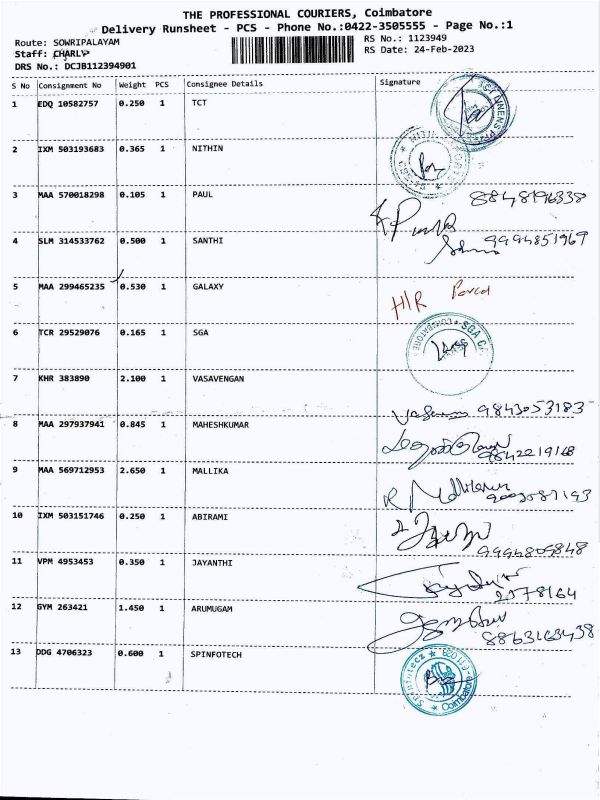 THE PROFESSIONAL COURIERS, Coimbatore
Delivery Runsheet - PCS - Phone No.:0422-3505555 - Page No.:1
Route: SOWRIPALAYAM RS No.: 1123949
Staff: CHARLY RS Date: 24-Feb-2023
DRS No.: DCJB112394901
S No Consignment No Weight PCS Consignee Details Signature
1 EDQ 10582757 0.250 1 TCT
2 IXM 503193683 0.365 1 NITHIN
3 MAA 570018298 0.105 1 PAUL 8848196338
4 SLM 314533762 0.500 1 SANTHI 9994851969
5 MAA 299465235 0.530 1 GALAXY H/R
6 TCR 29529076 0.165 1 SGA
7 KHR 383890 2.100 1 VASAVENGAN 9843053183
8 MAA 297937941 0.845 1 MAHESHKUMAR 9842219168
9 MAA 569712953 2.650 1 MALLIKA
10 IXM 503151746 0.250 1 ABIRAMI 9994809848
11 VPM 4953453 0.350 1 JAYANTHI
12 GYM 263421 1.450 1 ARUMUGAM 8863163438
13 DDG 4706323 0.600 1 SPINFOTECH
Coimbatore